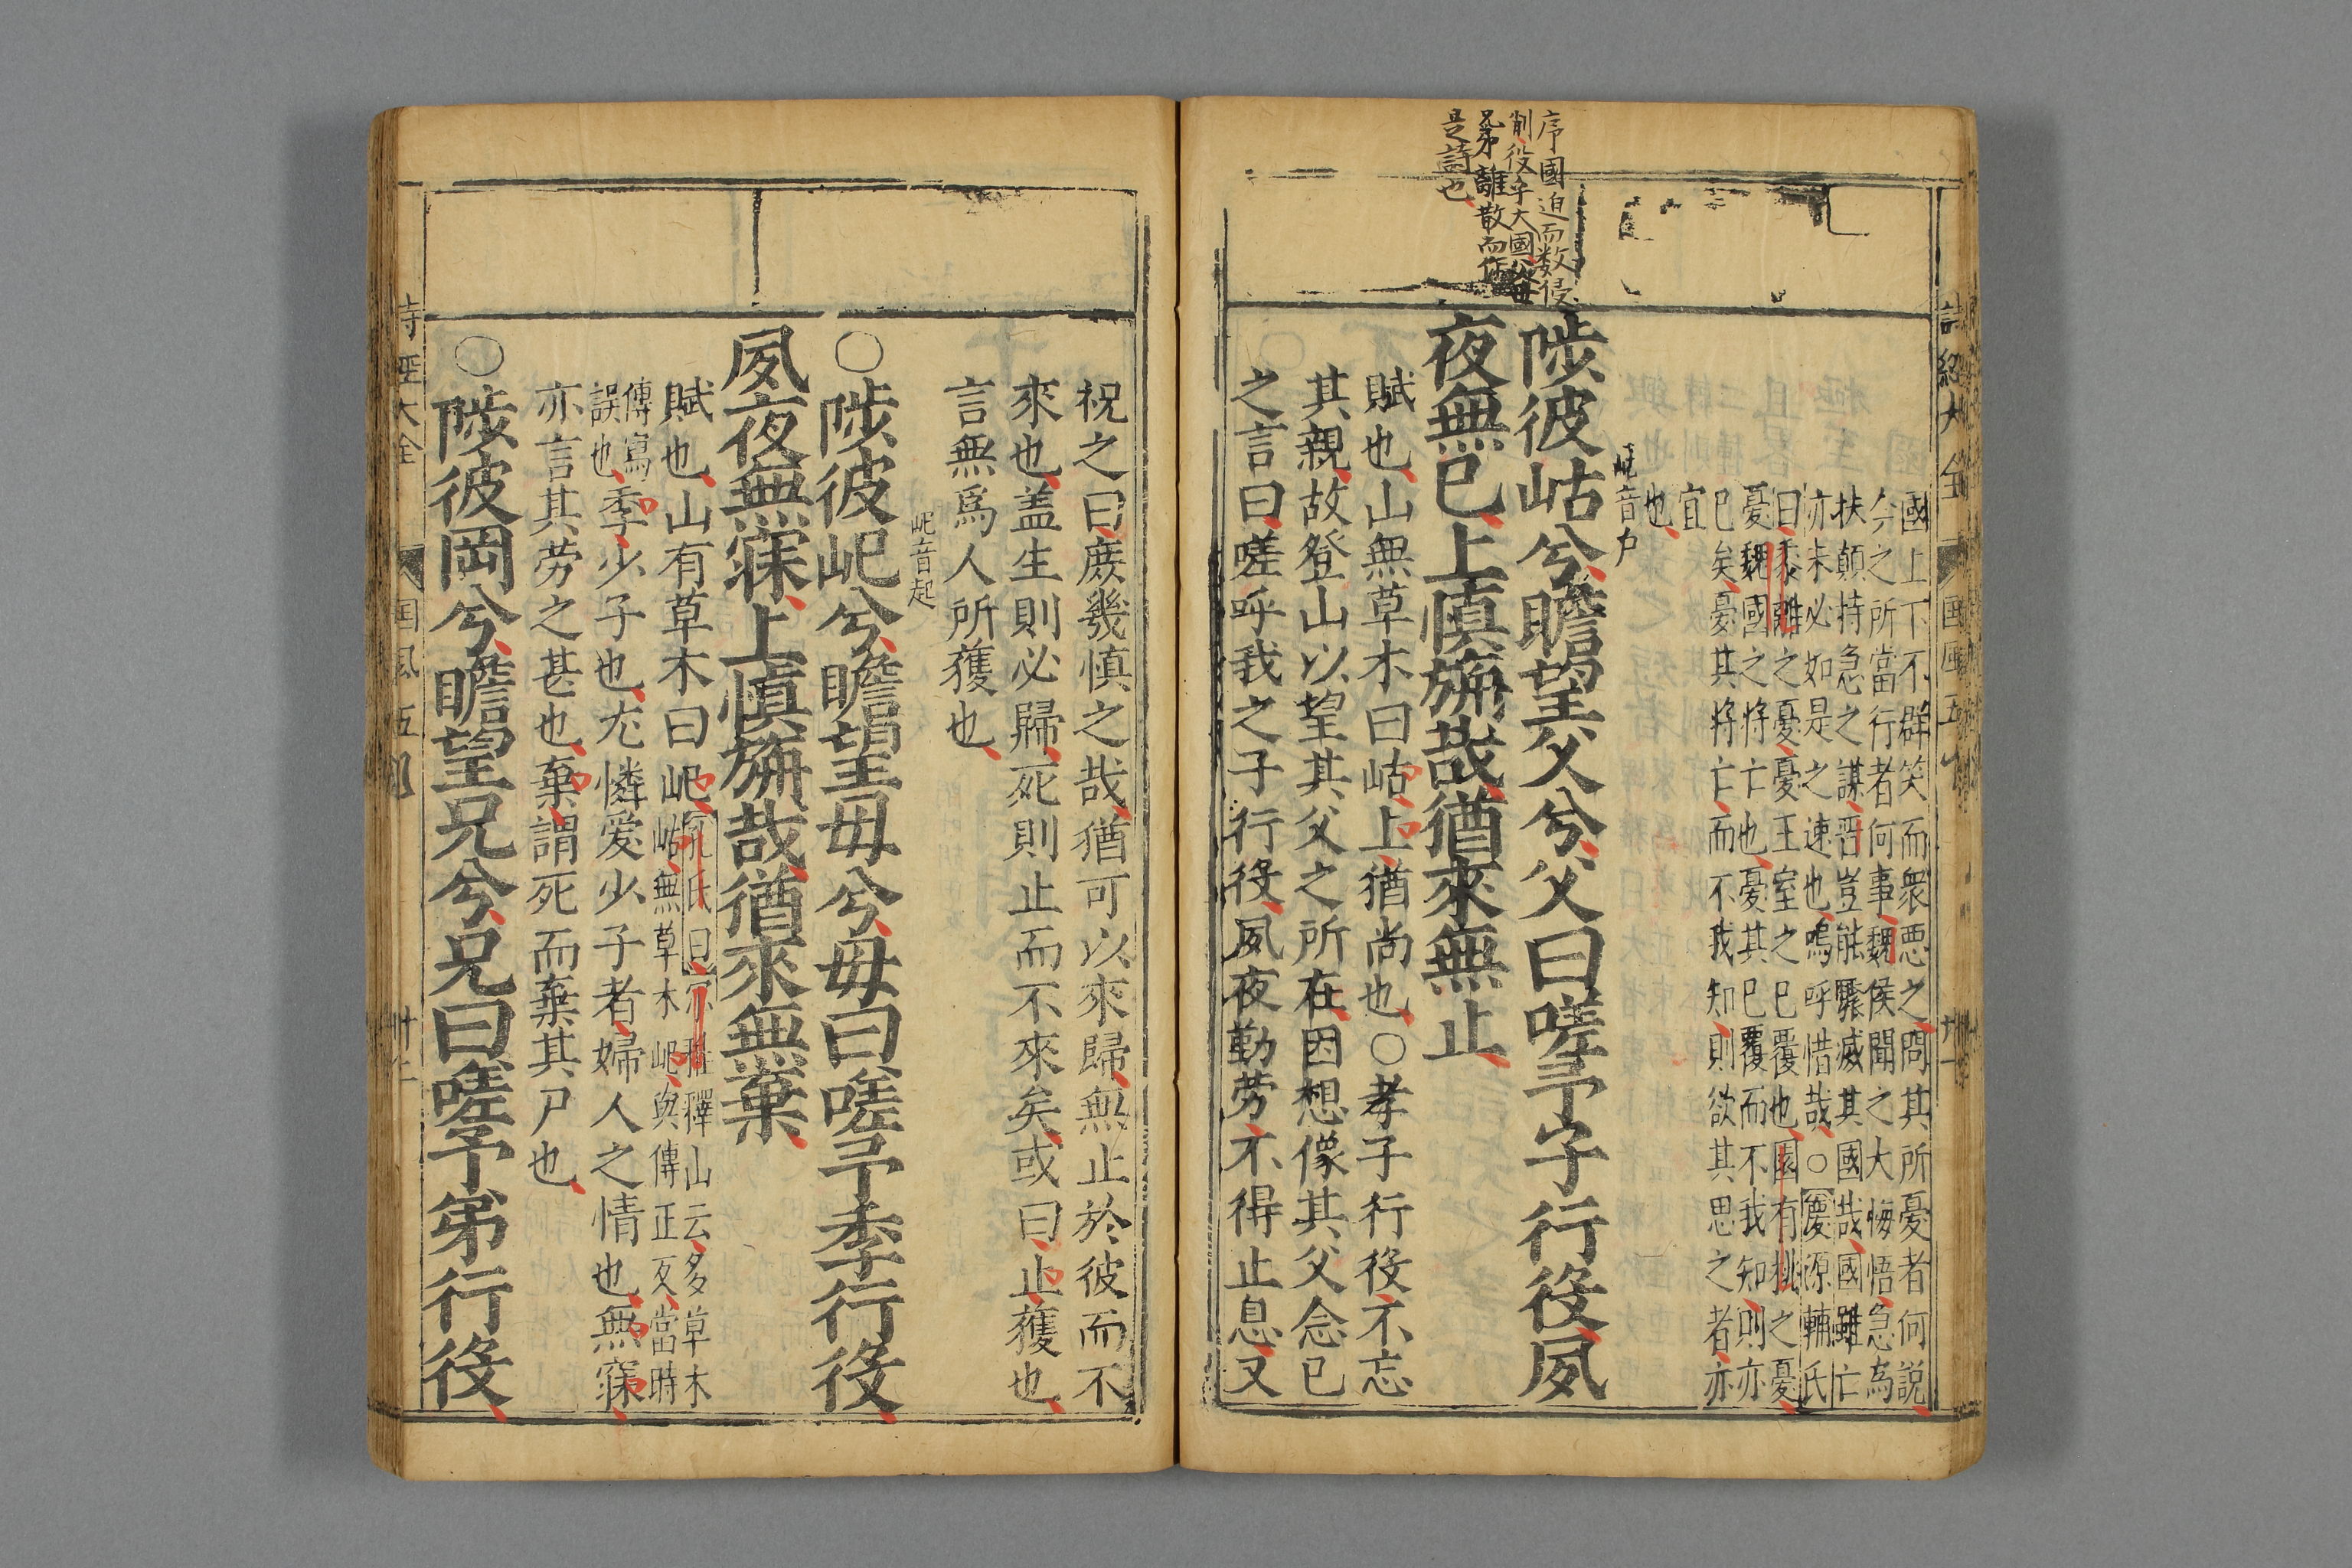 詩經大全
國風五
序國迫而数侵
削役乎大國父母
兄弟離散而作
是詩也
國上下不群笑而衆悪之問其所憂者何説
今之所當行者何事魏侯聞之大悔悟急為
扶顛持急之謀晋豈能驟滅其國哉國雖亡
亦未必如是之速也嗚呼惜哉○慶源輔氏
曰黍離之憂憂王室之已覆也園有桃之憂
憂魏國之將亡也憂其已覆而不我知則亦
已矣憂其將亡而不我知則欲其思之者亦
宜
也
岵音户
陟彼岵兮瞻望父兮父曰嗟予子行役夙
夜無已上慎旃哉猶來無止
賦也山無草木曰岵上猶尚也○孝子行役不忘
其親故登山以望其父之所在因想像其父念已
之言曰嗟呼我之子行役夙夜勤劳不得止息又
祝之曰庶幾慎之哉猶可以來歸無止於彼而不
來也盖生則必歸死則止而不來矣或曰止獲也
言無爲人所獲也
屺音起
○陟彼屺兮瞻望母兮母曰嗟予季行役
夙夜無寐上慎旃哉猶來無棄
賦也山有草木曰屺
孔氏曰尔雅釋山云多草木
屺岵無草木屺與傳正反當時
傳寫
誤也
季少子也尤憐爱少子者婦人之情也無寐
亦言其劳之甚也棄謂死而棄其尸也
○陟彼岡兮瞻望兄兮兄曰嗟予弟行役
詩經大全
国風五